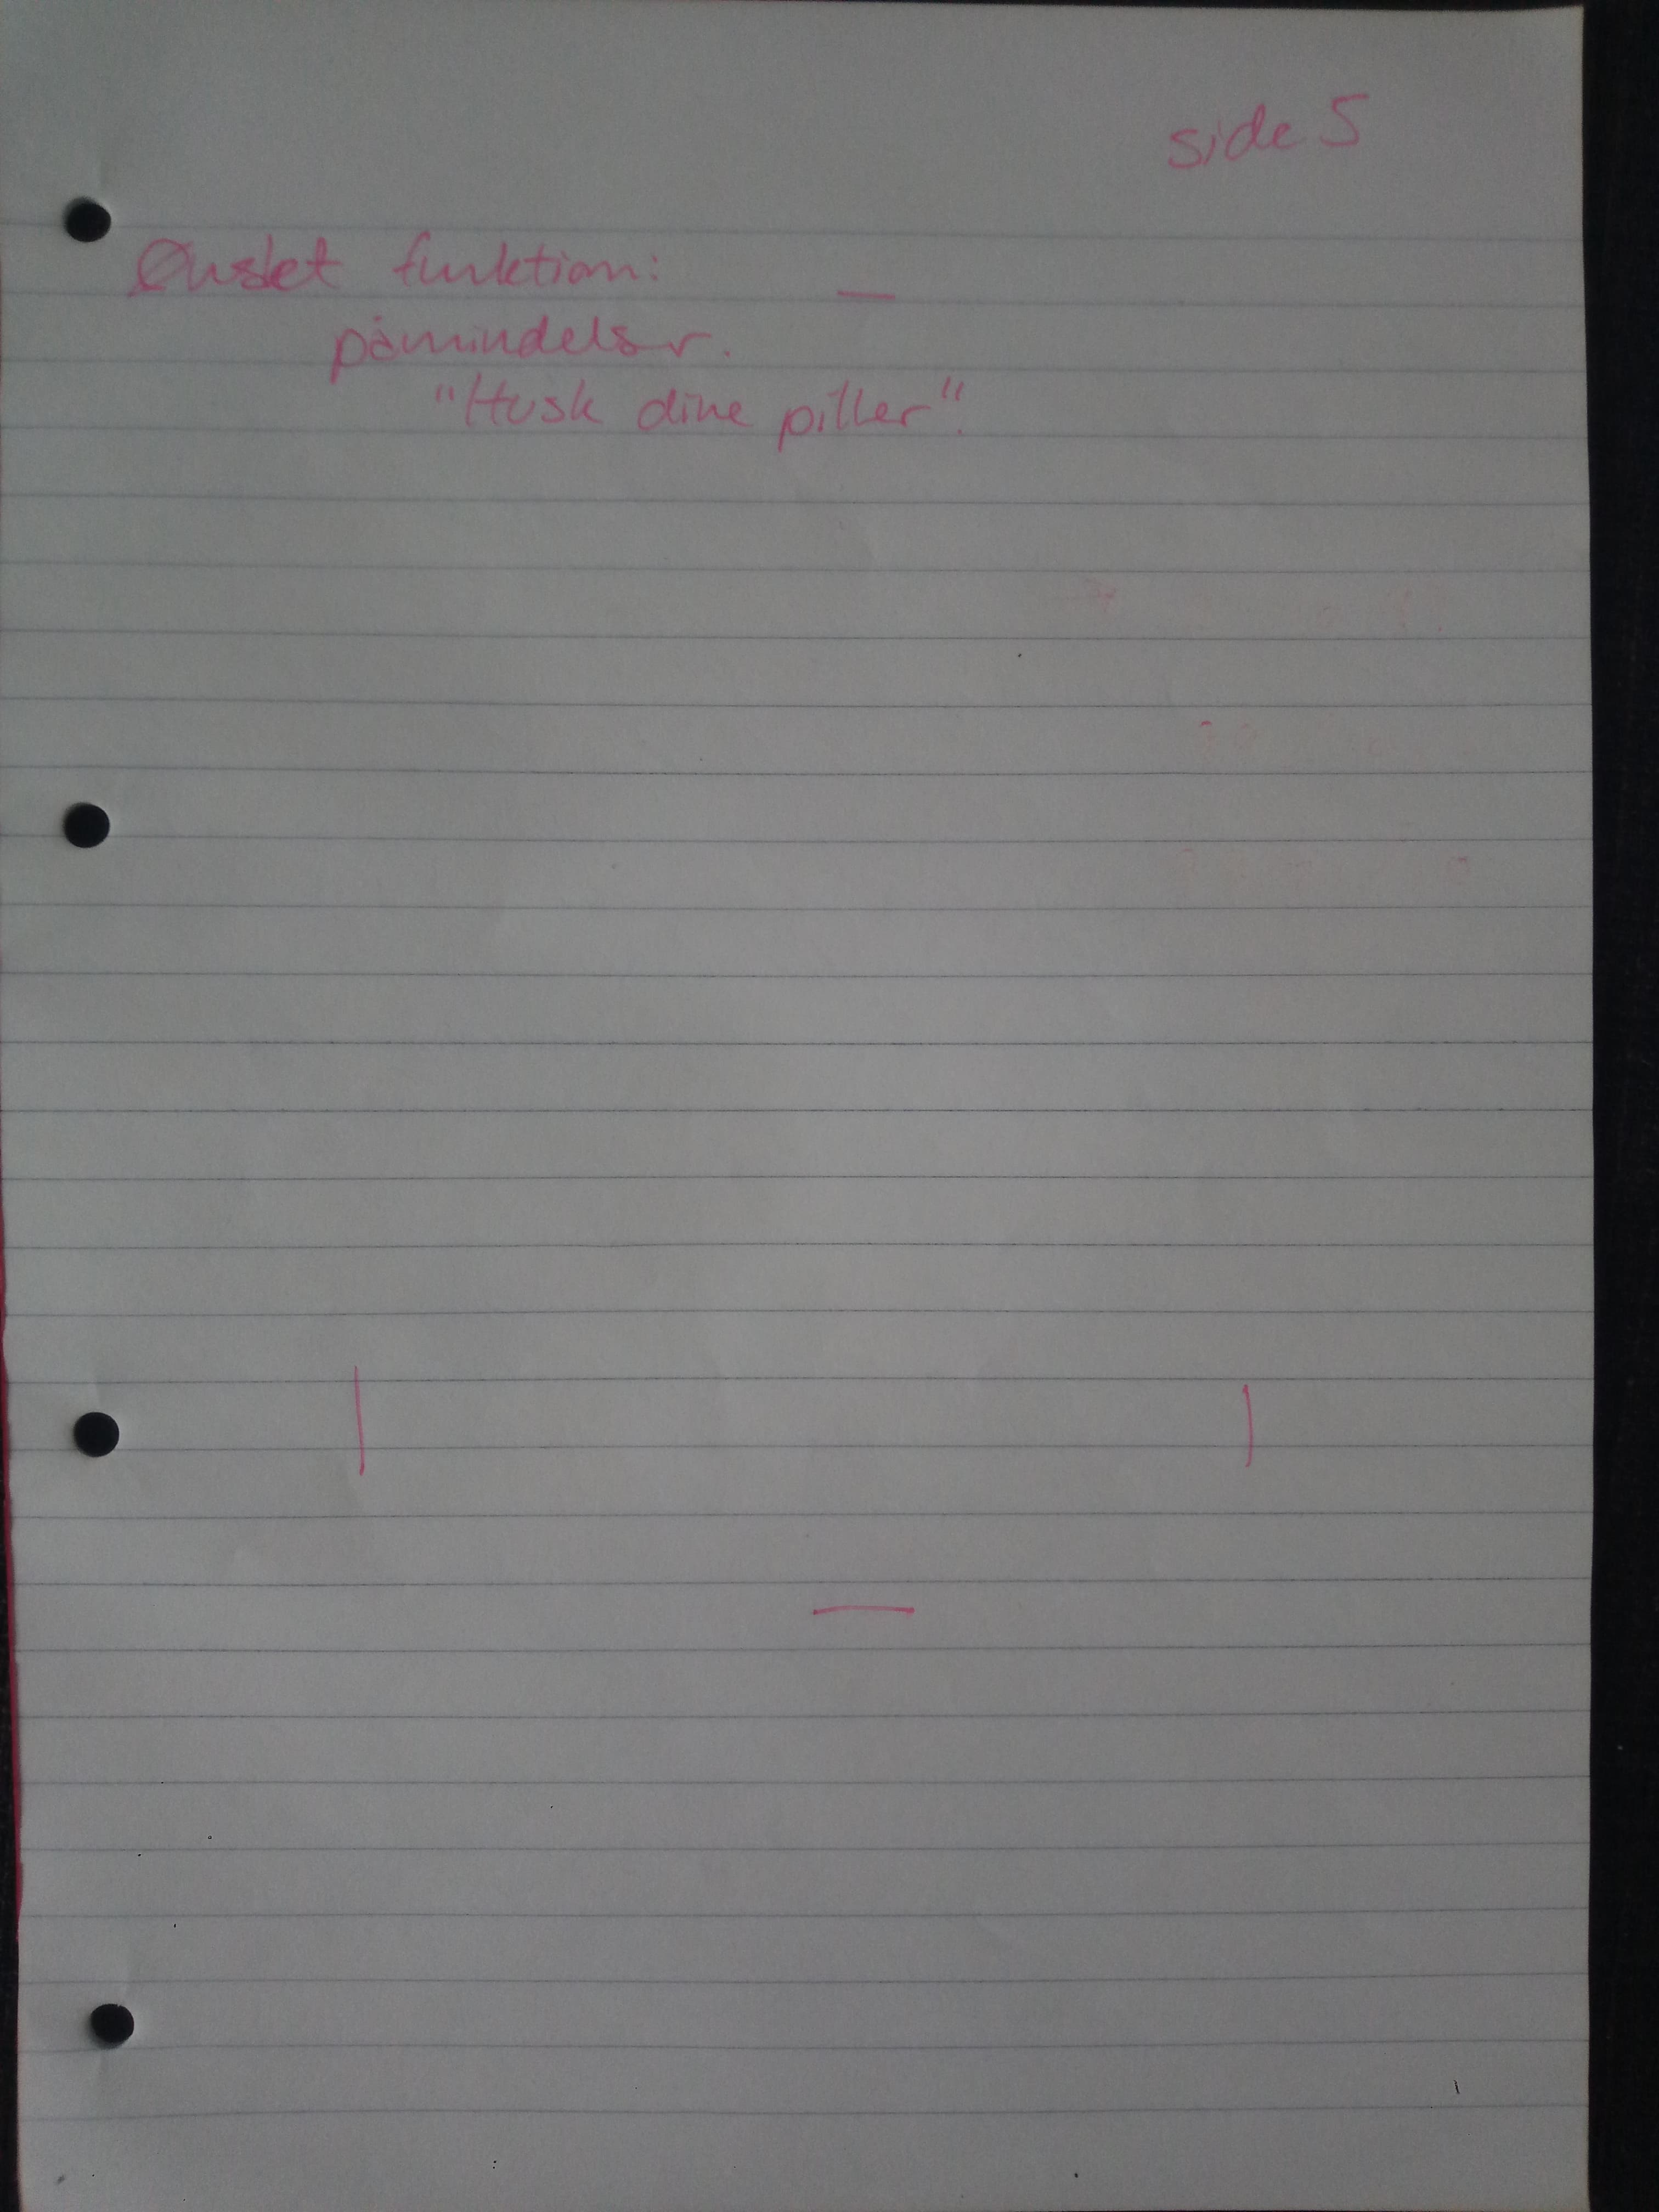 side 5
Ønsket funktion:
påmindelser.
"Husk dine piller".